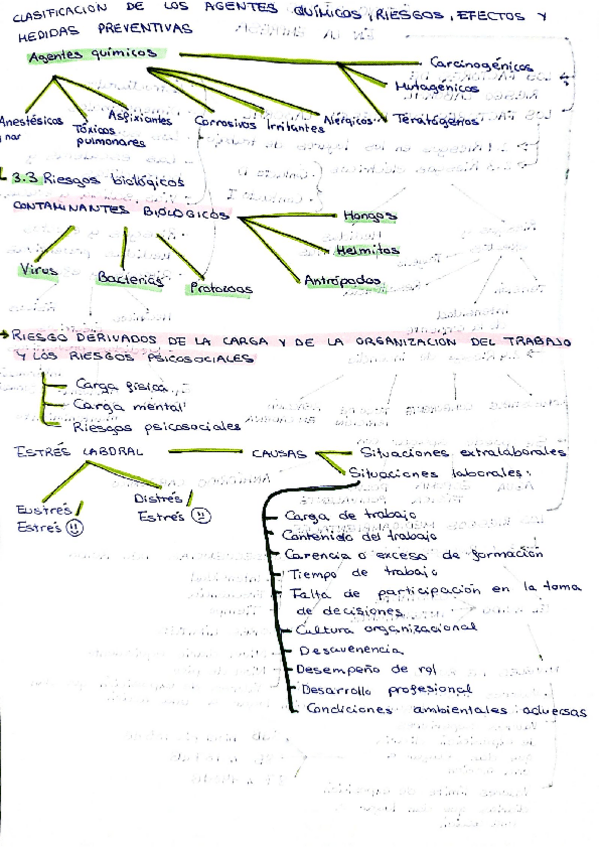 CLASIFICACION DE LOS AGENTES QUÍMICOS, RIESGOS, EFECTOS Y
MEDIDAS PREVENTIVAS
Agentes químicos
Carcinogénicos
Mutagénicos
Teratógenos
Anestésicos
Tóxicos
pulmonares
Aspixiantes
Corrosivos
Irritantes
Alérgicos
3.3 Riesgos biológicos
CONTAMINANTES BIOLOGICOS
Hongos
Helmitos
Antrópodos
Virus
Bacterias
Protozoos
RIESGO DERIVADOS DE LA CARGA Y DE LA ORGANIZACION DEL TRABAJO
Y LOS RIESGOS PSICOSOCIALES
Carga física
Carga mental
Riesgos psicosociales
ESTRÉS LABORAL
CAUSAS
Situaciones extralaborales
Situaciones laborales:
Eustrés/
Estrés
Distrés/
Estrés
Carga de trabajo
Contenido del trabajo
Carencia o exceso de formación
Tiempo de trabajo
Falta de participación en la toma
de decisiones
Cultura organizacional
Desavenencia
Desempeño de rol
Desarrollo profesional
Condiciones ambientales adversas